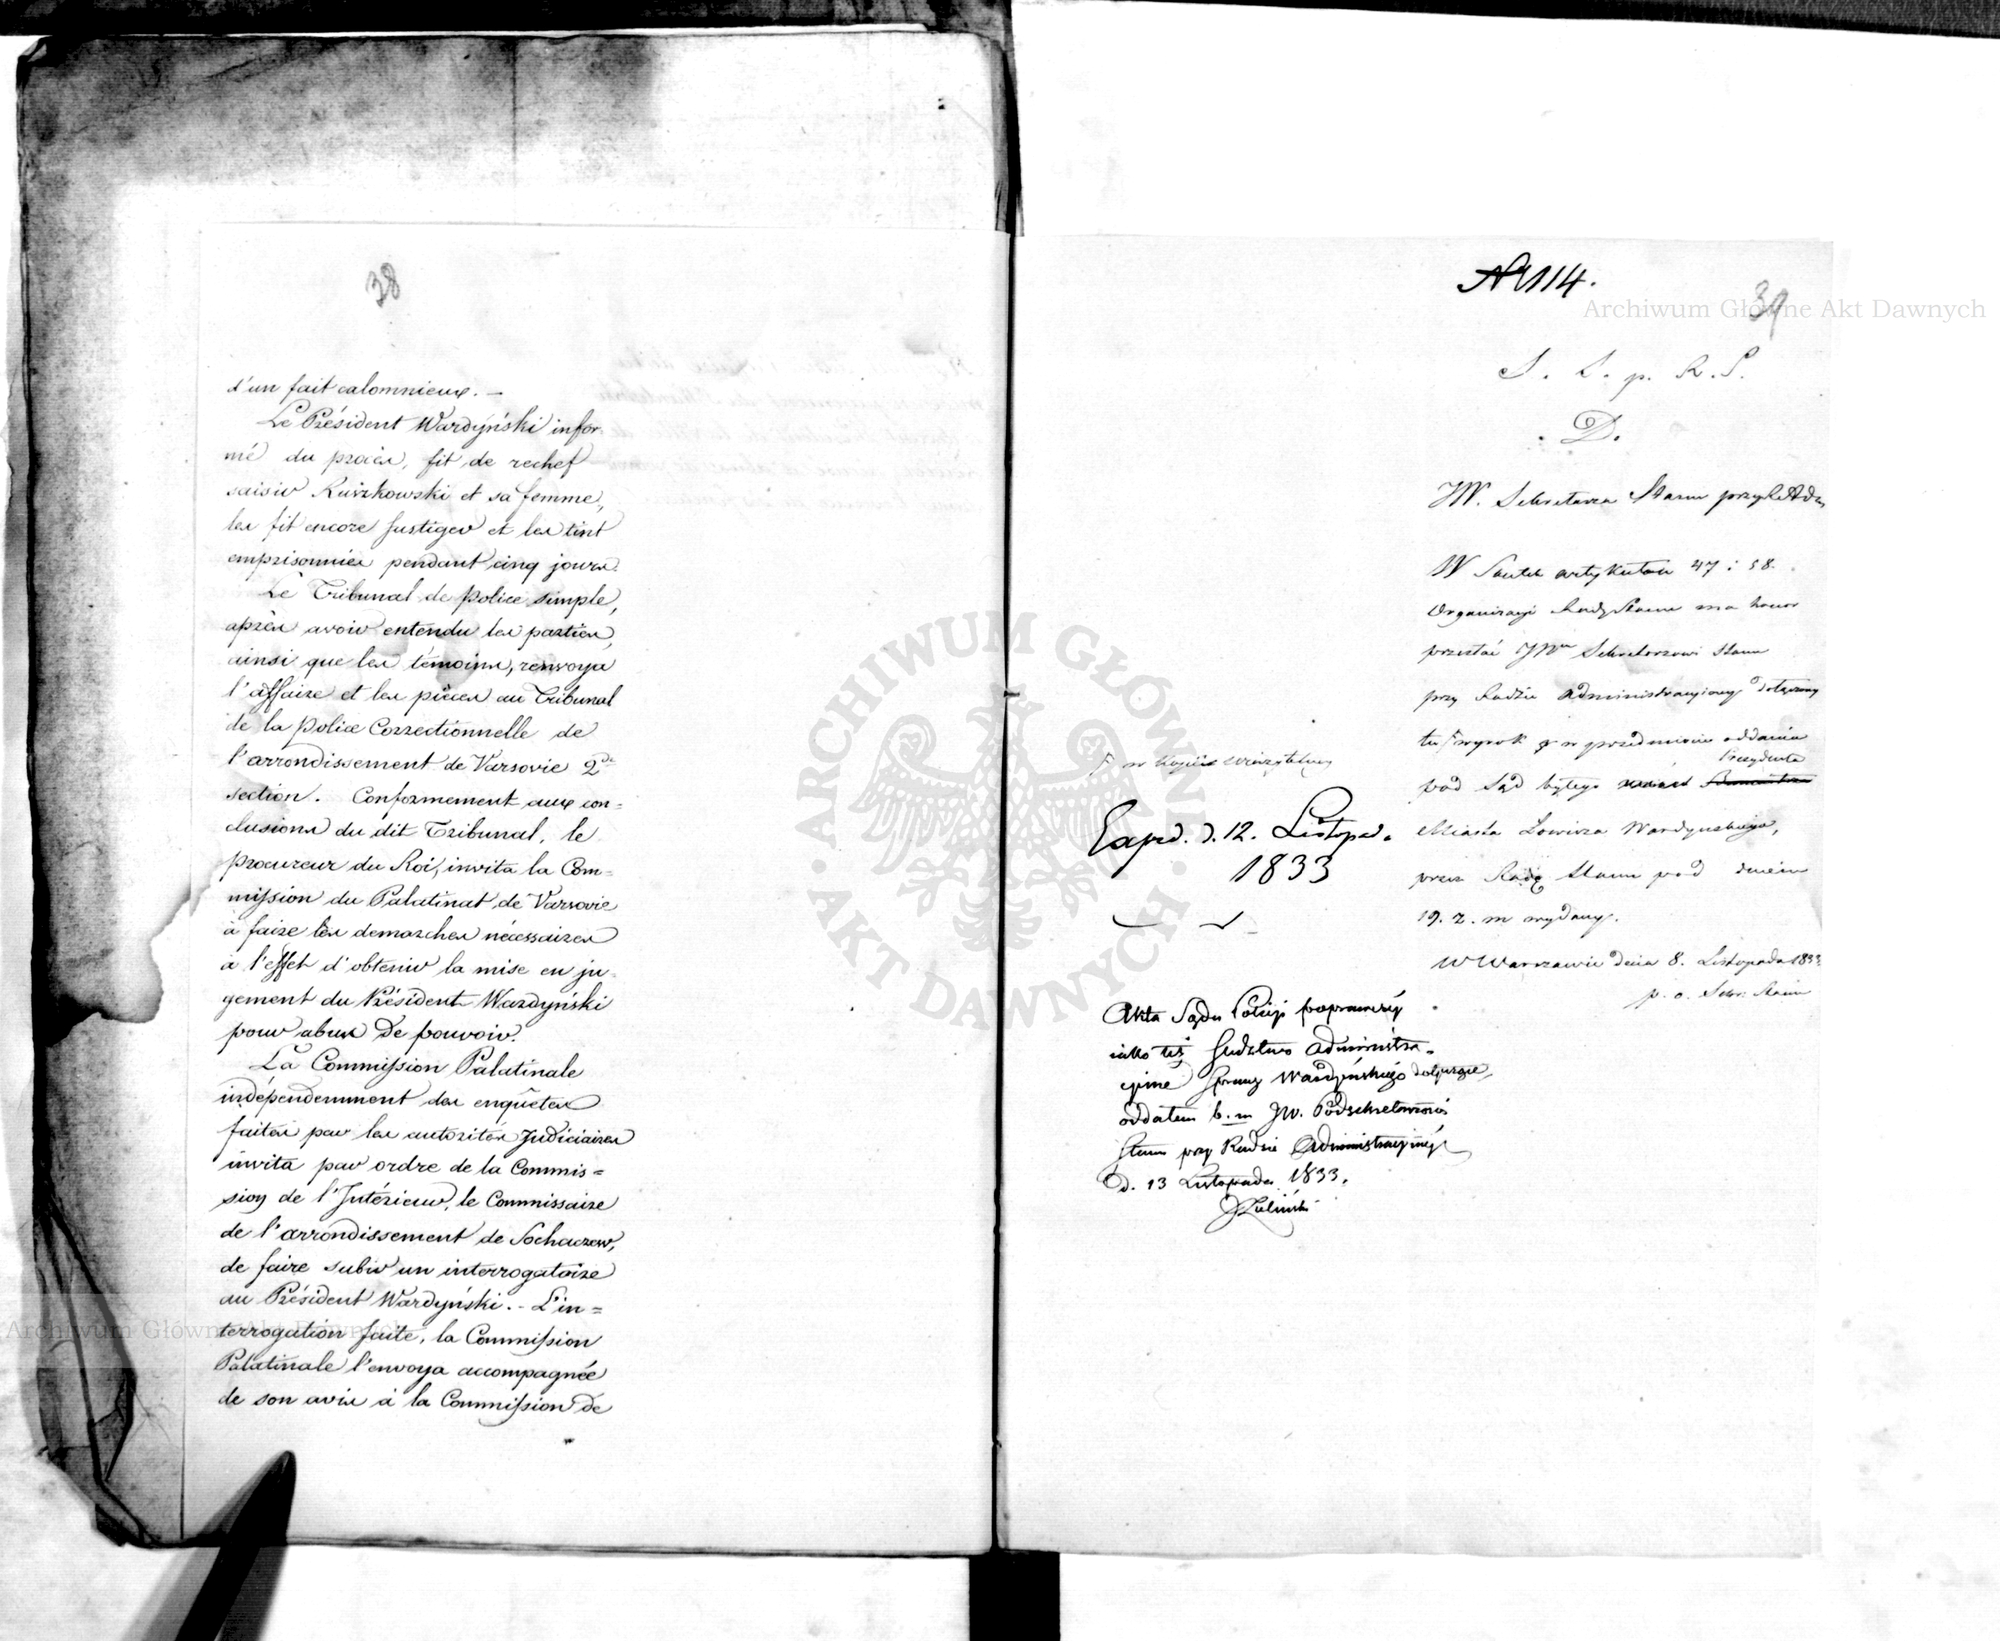 38
d'un fait calomnieux. —
Le Président Wardyński infor-
mé du procès, fit de rechef
saisir Ruszkowski et sa femme,
les fit encore fustiger et les tint
emprisonnés pendant cinq jours.
Le Tribunal de police simple,
après avoir entendu les parties,
ainsi que les témoins, renvoya
l'affaire et les pièces au Tribunal
de la police Correctionnelle de
l'arrondissement de Varsovie 2de
section. Conformement aux con=
clusions du dit Tribunal, le
procureur du Roi, invita la Com=
mission du Palatinat de Varsovie
à faire les demarches nécessaires
à l'effet d'obtenir la mise en ju-
gement du Président Wardyński
pour abus de pouvoir.
La Commission Palatinale
indépendemment des enquêtes
faites par les autorités Judiciaires
invita par ordre de la Commis=
sion de l'Intérieur, le Commissaire
de l'arrondissement de Sochaczew,
de faire subir un interrogatoire
au Président Wardyński. - L'in=
terrogation faite, la Commission
Palatinale l'envoya accompagnée
de son avis à la Commission de
Nr 114.
39
S. S. p. R. S.
D.
JW. Sekretarza Stanu przy R. Adm
W Skutek artykułów 47 i 58.
Organizacyi Rady Stanu ma honor
przesłać JWu Sekretarzowi Stanu
przy Radzie Administracyjney dołączony
tu wyrok w przedmiocie oddania
pod Sąd byłego Prezydenta
Miasta Łowicza Wardyńskiego,
przez Radę Stanu pod dniem
19. z. m wydany.
W Warszawie dnia 8. Listopada 1833.
p. o. Sekr. Stanu
w kopii wierzytelney
Exped. d. 12. Listopad.
1833
Akta Sądu Policji poprawczéj
iako też Śledztwo administra-
cyine Sprawy Wardyńskiego dotyczące,
oddałem b. m JW. Podsekretarzowi
Stanu przy Radzie Administracyinéj
d. 13 Listopada 1833.
Zieliński
Archiwum Główne Akt Dawnych
Archiwum Główne Akt Dawnych
ARCHIWUM GŁÓWNE · AKT DAWNYCH ·